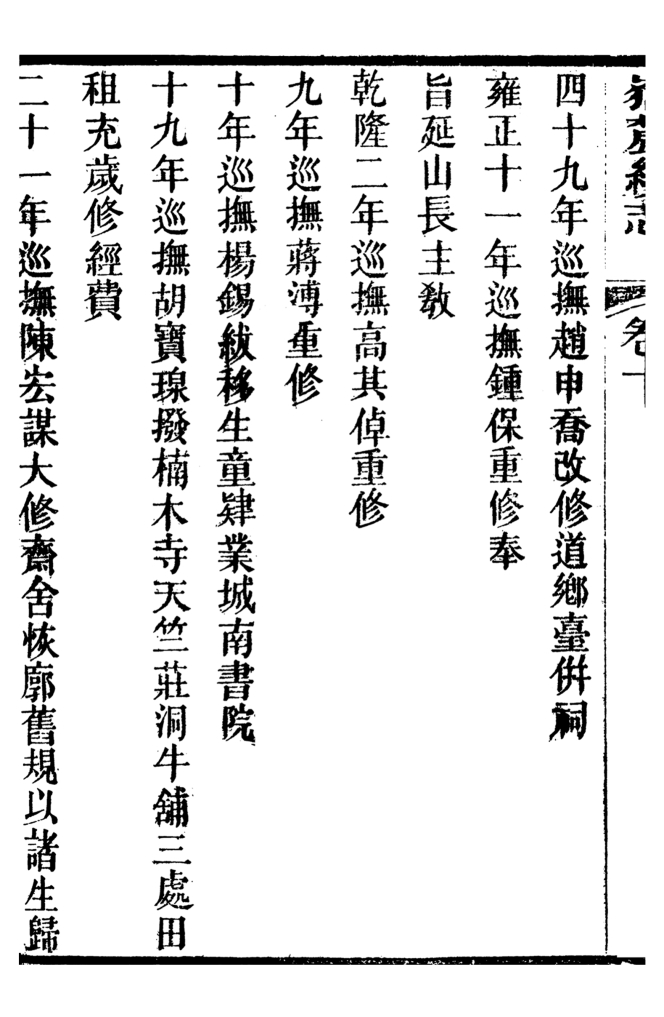 四十九年巡撫趙申喬改修道鄉臺併祠
雍正十一年巡撫鍾保重修奉
旨延山長主敎
乾隆二年巡撫高其倬重修
九年巡撫蔣溥重修
十年巡撫楊錫紱移生童肄業城南書院
十九年巡撫胡寶瑔撥楠木寺天竺莊洞牛舖三處田
租充歲修經費
二十一年巡撫陳宏謀大修齋舍恢廓舊規以諸生歸